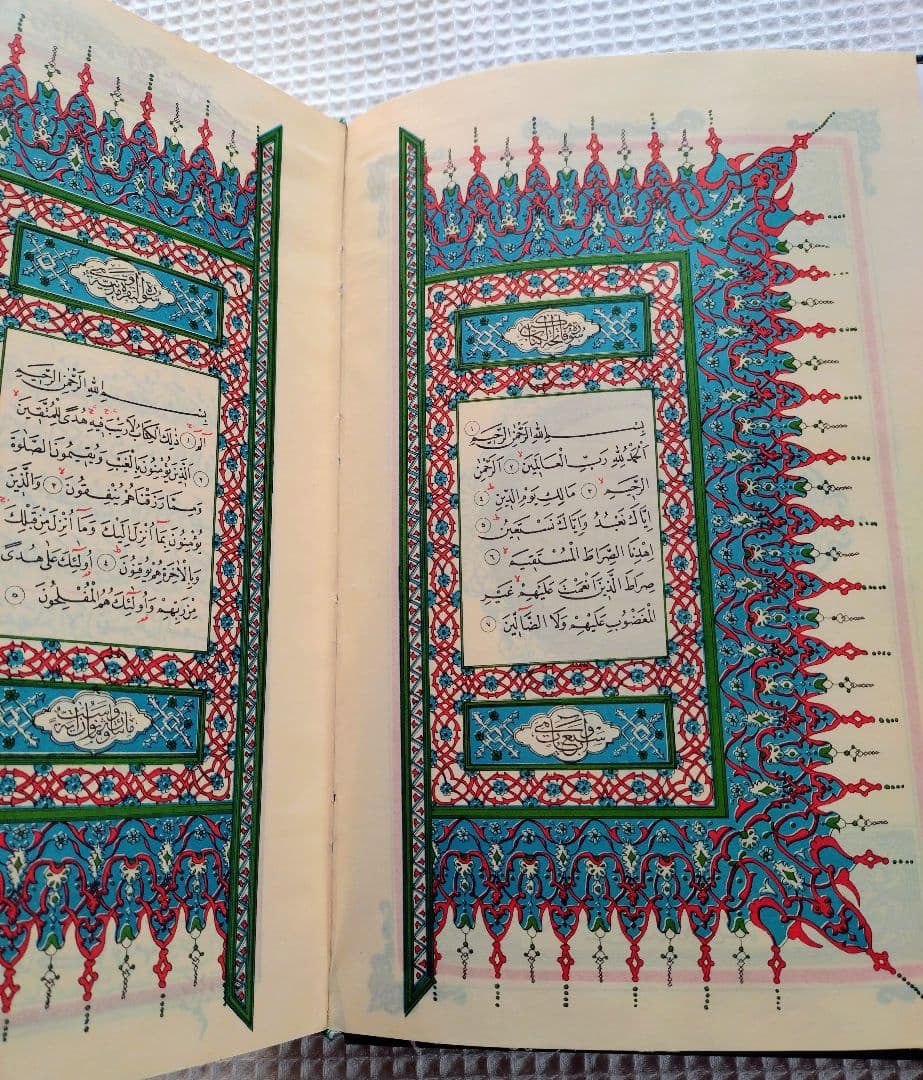 سورة فاتحة الكتاب
بِسْمِ اللهِ الرَّحْمٰنِ الرَّحِيمِ ١
اَلْحَمْدُ لِلّٰهِ رَبِّ الْعَالَمِينَ ٢ اَلرَّحْمٰنِ
الرَّحِيمِ ٣ مَالِكِ يَوْمِ الدِّينِ ٤
اِيَّاكَ نَعْبُدُ وَاِيَّاكَ نَسْتَعِينُ ٥
اِهْدِنَا الصِّرَاطَ الْمُسْتَقِيمَ ٦
صِرَاطَ الَّذِينَ اَنْعَمْتَ عَلَيْهِمْ غَيْرِ
الْمَغْضُوبِ عَلَيْهِمْ وَلَا الضَّالِّينَ ٧
سورة البقرة
بِسْمِ اللهِ الرَّحْمٰنِ الرَّحِيمِ
الٓمٓ ١ ذٰلِكَ الْكِتَابُ لَارَيْبَ فِيهِ هُدًى لِلْمُتَّقِينَ
٢ اَلَّذِينَ يُؤْمِنُونَ بِالْغَيْبِ وَيُقِيمُونَ الصَّلٰوةَ
وَمِمَّا رَزَقْنَاهُمْ يُنْفِقُونَ ٣ وَالَّذِينَ
يُؤْمِنُونَ بِمَٓا اُنْزِلَ اِلَيْكَ وَمَٓا اُنْزِلَ مِنْ قَبْلِكَ
وَبِالْاٰخِرَةِ هُمْ يُوقِنُونَ ٤ اُولٰٓئِكَ عَلٰى هُدًى
مِنْ رَبِّهِمْ وَاُولٰٓئِكَ هُمُ الْمُفْلِحُونَ ٥